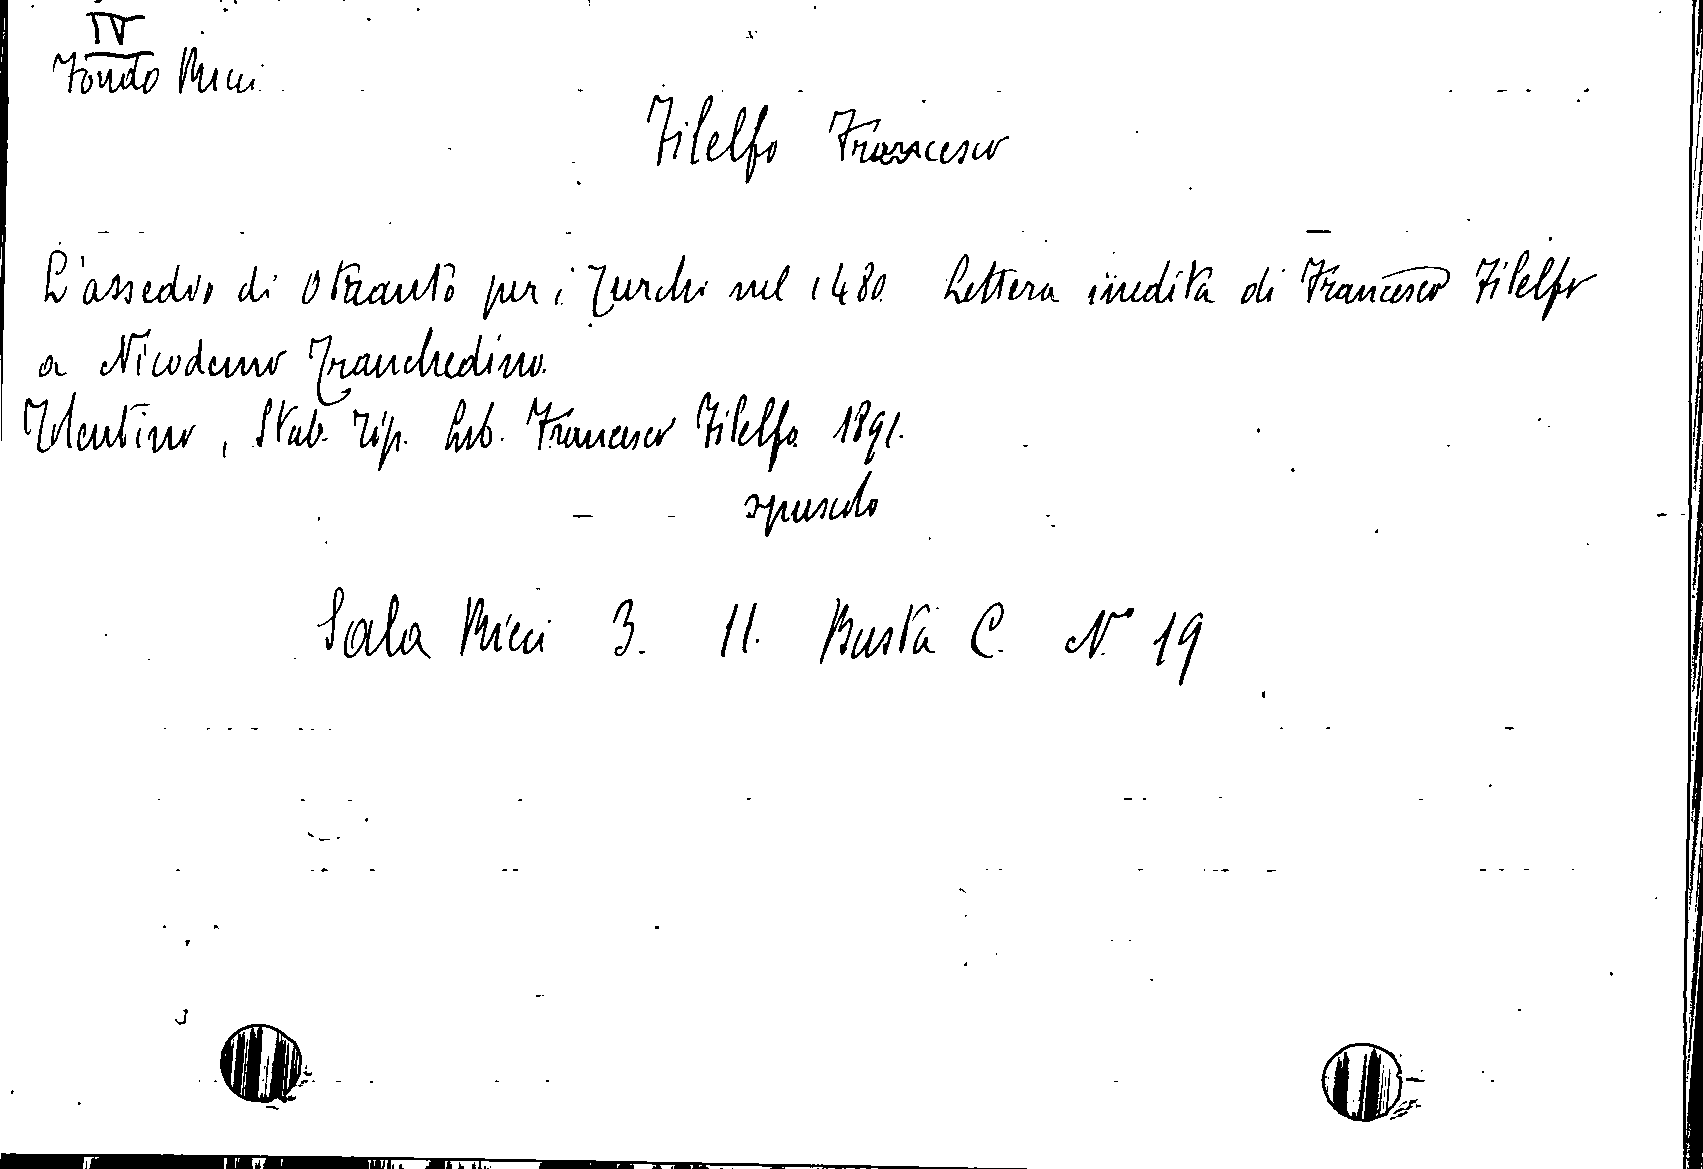 IV
Fondo Ricci
Filelfo Francesco
L'assedio di Otranto per i Turchi nel 1480. Lettera inedita di Francesco Filelfo
a Nicodemo Tranchedino.
Tolentino, Stab. Tip. Lib. Francesco Filelfo 1891.
opuscolo
Sala Ricci 3. 11. Busta C. N° 19